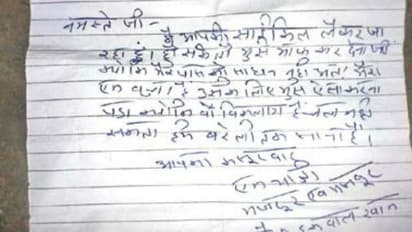 नमस्ते जी -
मैं आपकी साईकिल लेकर जा
रहा हूं। हो सके तो मुझे माफ कर देना जी
क्योंकि मेरे पास कोई साधन नहीं है मेरा
एक बच्चा है उसके लिए मुझे ऐसा करना
पड़ा क्योंकि वो विकलांग है चल नहीं
सकता हमें बरेली तक जाना है।
आपका कसूरवार
एक यात्री
मजदूर एवं मजबूर
इकबाल खान